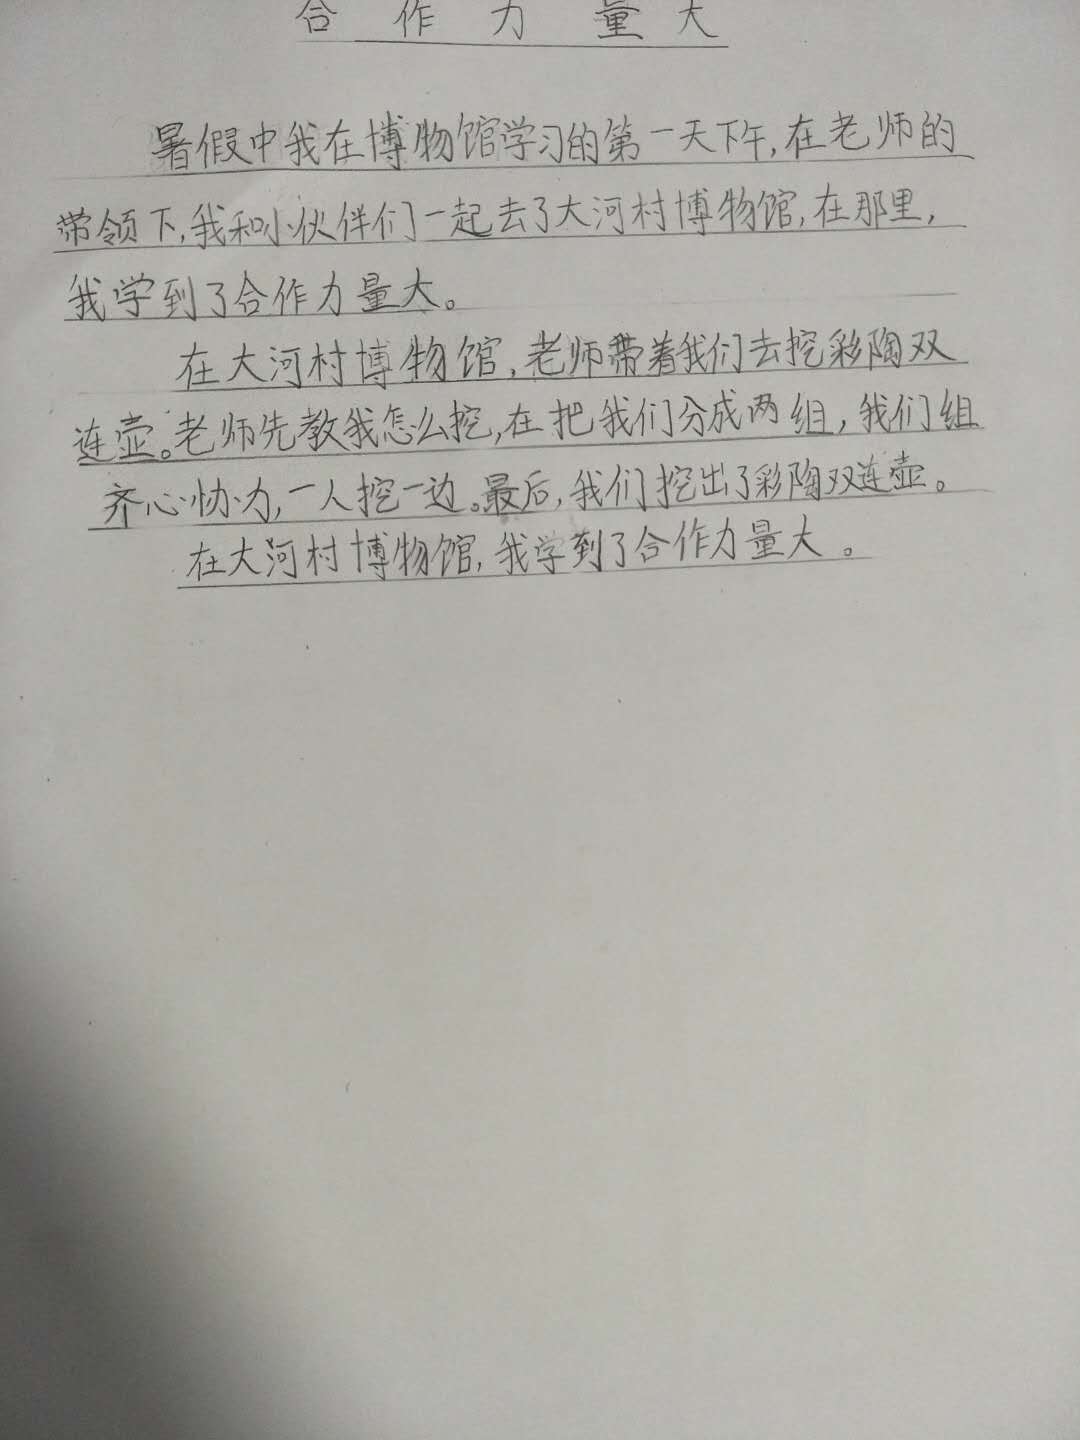 合作力量大
暑假中我在博物馆学习的第一天下午,在老师的
带领下,我和小伙伴们一起去了大河村博物馆,在那里,
我学到了合作力量大。
在大河村博物馆,老师带着我们去挖彩陶双
连壶。老师先教我怎么挖,在把我们分成两组,我们组
齐心协力,一人挖一边。最后,我们挖出了彩陶双连壶。
在大河村博物馆,我学到了合作力量大。